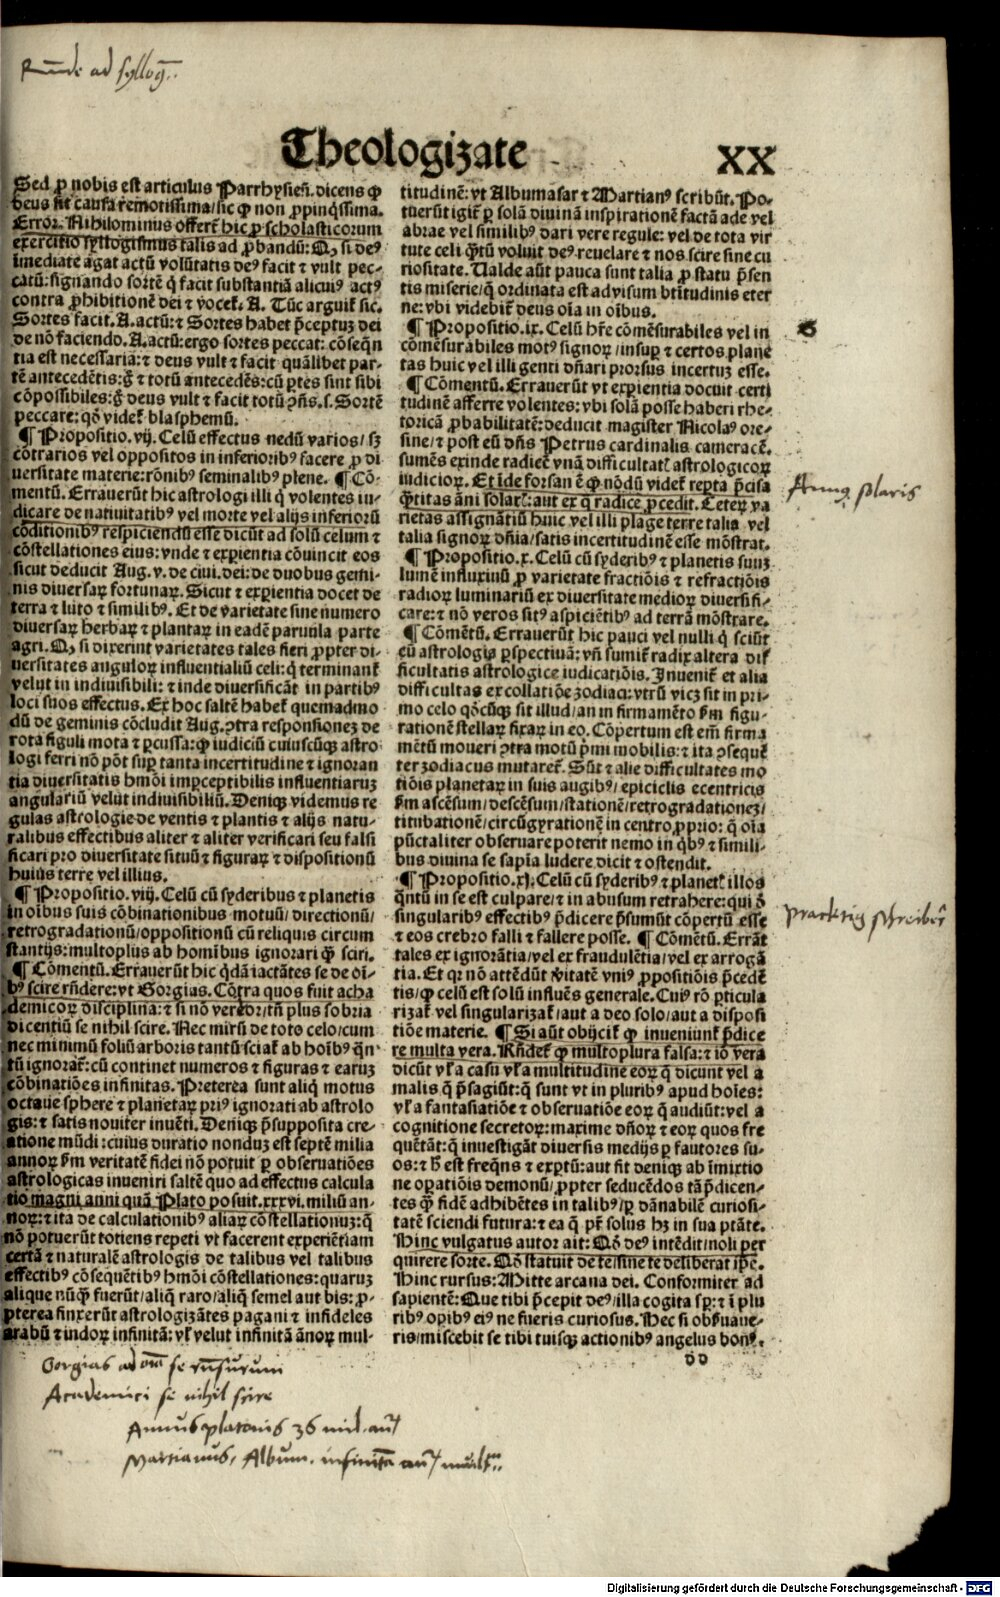 Theologizate XX
Sed ꝑ nobis est articulus Parrhysieñ. dicens ꝙ
deus sit causa remotissima/sic ꝙ non ꝓpinq̃ssima.
Error. Nihilominus offerẽ hic ꝓ scholasticorum
exercitio syllogismus talis ad ꝓbandũ: Ꝙ si deꝰ
ĩmediate agat actũ volũtatis deꝰ facit ⁊ vult pec-
catũ: signando sortẽ q̃ facit substantiã alicuiꝰ actꝰ
contra ꝓhibitionẽ dei ⁊ vocet᷑. A. Tũc arguit᷑ sic.
Sortes facit. A. actũ: ⁊ Sortes habet p̃ceptuꝫ dei
de nõ faciendo. A. actũ: ergo sortes peccat: cõseq̃n
tia est necessaria: ⁊ deus vult ⁊ facit quãlibet par-
tẽ antecedẽtis: g̃ ⁊ totũ antecedẽs: cũ ꝑtes sint sibi
cõpossibiles: g̃ deus vult ⁊ facit totũ ꝯñs. s. Sortẽ
peccare: qđ videt᷑ blasphemũ.
¶ Propositio. vij. Celũ effectus nedũ varios/ sꝫ
cõtrarios vel oppositos in inferioribꝰ facere ꝓ di
uersitate materie: rõnibꝰ seminalibꝰ plene. ¶ Cõ-
mentũ. Errauerũt hic astrologi illi q̃ volentes iu-
dicare de natiuitatibꝰ vel morte vel alijs inferiorũ
cõditionibꝰ respiciendũ esse dicũt ad solũ celum ⁊
cõstellationes eius: vnde ⁊ exꝑientia cõuincit eos
sicut deducit Aug. v. de ciui. dei: de duobus gemi-
nis diuersaꝝ fortunaꝝ. Sicut ⁊ exꝑientia docet de
terra ⁊ luto ⁊ similibꝰ. Et de varietate sine numero
diuersaꝝ herbaꝝ ⁊ plantaꝝ in eadẽ paruula parte
agri. Ꝙ si dixerint varietates tales fieri ꝓpter di-
uersitates anguloꝝ influentialiũ celi: q̃ terminant᷑
velut in indiuisibili: ⁊ inde diuersificãt in partibꝰ
loci suos effectus. Ex hoc saltẽ habet᷑ quemadmo
dũ de geminis cõcludit Aug. ꝯtra responsionez de
rota figuli mota ⁊ ꝑcussa: ꝙ iudiciũ cuiuscũqꝫ astro
logi ferri nõ põt suꝑ tanta incertitudine ⁊ ignoran
tia diuersitatis hmõi imꝑceptibilis influentiaruꝫ
angulariũ velut indiuisibiliũ. Deniqꝫ videmus re
gulas astrologie de ventis ⁊ plantis ⁊ alijs natu-
ralibus effectibus aliter ⁊ aliter verificari seu falsi
ficari pro diuersitate situũ ⁊ figuraꝝ ⁊ dispositionũ
huius terre vel illius.
¶ Propositio. viij. Celũ cũ syderibus ⁊ planetis
in oĩbus suis cõbinationibus motuũ/ directionũ/
retrogradationũ/oppositionũ cũ reliquis circum
stantijs: multoplus ab homĩbus ignorari q̃ sciri.
¶ Cõmentũ. Errauerũt hic q̃dã iactãtes se de oĩ-
bꝰ scire rñdere: vt Gorgias. Cõtra quos fuit acha
demicoꝝ disciplina: ⁊ si nõ vereor/tñ plus sobria
dicentiũ se nihil scire. Nec mirũ de toto celo/cum
nec minimũ foliũ arboris tantũ sciat᷑ ab hoĩbꝰ q̃n-
tũ ignorat᷑: cũ continet numeros ⁊ figuras ⁊ earuꝫ
cõbinatiões infinitas. Preterea sunt aliq̃ motus
octaue sphere ⁊ planetaꝝ priꝰ ignorati ab astrolo
gis: ⁊ satis nouiter inuẽti. Deniqꝫ p̃supposita cre-
atione mũdi: cuius duratio nonduꝫ est septẽ milia
annoꝝ ẜm veritatẽ fidei nõ potuit ꝑ obseruatiões
astrologicas inueniri saltẽ quo ad effectus calcula
tio magni anni quã Plato posuit. xxxvi. miliũ an-
noꝝ: ⁊ ita de calculationibꝰ aliaꝝ cõstellationuꝫ: q̃
nõ potuerũt totiens repeti vt facerent experiẽtiam
certã ⁊ naturalẽ astrologis de talibus vel talibus
effectibꝰ cõsequẽtibꝰ hmõi cõstellationes: quaruꝫ
alique nũq̃ fuerũt/ aliq̃ raro/aliq̃ semel aut bis: ꝓ-
pterea finxerũt astrologizãtes pagani ⁊ infideles
arabũ ⁊ indoꝝ infinitã: vl᷑ velut infinitã ãnoꝝ mul-
titudinẽ: vt Albumasar ⁊ Martianꝰ scribũt. Po-
tuerũt igit᷑ ꝑ solã diuinã inspirationẽ factã ade vel
abrae vel similibꝰ dari vere regule: vel de tota vir
tute celi q̃tũ voluit deꝰ reuelare ⁊ nos scire sine cu
riositate. Ualde aũt pauca sunt talia ꝓ statu p̃sen
tis miserie/q̃ ordinata est ad visum btĩtudinis eter
ne: vbi videbit᷑ deus oĩa in oĩbus.
¶ Propositio. ix. Celũ hr̃e cõmẽsurabiles vel in
cõmẽsurabiles motꝰ signoꝝ/insuꝑ ⁊ certos plane
tas huic vel illi genti dñari prorsus incertuꝫ esse.
¶ Cõmentũ. Errauerũt vt exꝑientia docuit certi
tudinẽ afferre volentes: vbi solã posse haberi rhe-
toricã ꝓbabilitatẽ: deducit magister Nicolaꝰ ore-
sine/ ⁊ post eũ dñs Petrus cardinalis cameracẽ.
sumẽs exinde radicẽ vnã difficultatꝭ astrologicoꝝ
iudicioꝝ. Et ĩde forsan ẽ ꝙ nõdũ videt᷑ reꝑta p̃cisa
q̃titas ãni solarꝭ: aut ex q̃ radice ꝓcedit. Ceteꝝ va
rietas assignãtiũ huic vel illi plage terre talia vel
talia signoꝝ dñia/ satis incertitudinẽ esse mõstrat.
¶ Propositio. x. Celũ cũ syderibꝰ ⁊ planetis suuꝫ
lumẽ influxiuũ ꝓ varietate fractiõis ⁊ refractiõis
radioꝝ luminariũ ex diuersitate medioꝝ diuersifi-
care: ⁊ nõ veros sitꝰ aspiciẽtibꝰ ad terrã mõstrare.
¶ Cõmẽtũ. Errauerũt hic pauci vel nulli q̃ sciũt
cũ astrologia ꝑspectiuã: vñ sumit᷑ radix altera dif
ficultatis astrologice iudicatiõis. Inuenit᷑ ⁊ alia
difficultas ex collatiõe zodiaci: vtrũ vicꝫ sit in pri-
mo celo qđcũqꝫ sit illud/an in firmamẽto ẜm figu-
rationẽ stellaꝝ fixaꝝ in eo. Cõpertum est em̃ firma
mẽtũ moueri ꝯtra motũ p̃mi mobilis: ⁊ ita ꝯsequẽ
ter zodiacus mutaret᷑. Sũt ⁊ alie difficultates mo
tiõis planetaꝝ in suis augibꝰ/ epiciclis ecentricis
ẜm ascẽsum/descẽsum/stationẽ/retrogradationez/
titubationẽ/circũgyrationẽ in centro ꝓprio: q̃ oĩa
pũctaliter obseruare poterit nemo in q̃bꝰ ⁊ simili-
bus diuina se sapĩa ludere dicit ⁊ ostendit.
¶ Propositio. xj. Celũ cũ syderibꝰ ⁊ planetꝭ illos
q̃ntũ in se est culpare/⁊ in abusum retrahere: qui đ
singularibꝰ effectibꝰ p̃dicere p̃sumũt cõpertũ esse
⁊ eos crebro falli ⁊ fallere posse. ¶ Cõmẽtũ. Errãt
tales ex ignorãtia/vel ex fraudulẽtia/vel ex arrogã
tia. Et qꝛ nõ attẽdũt v̾itatẽ vniꝰ ꝓpositiõis p̃cedẽ
tis/ꝙ celũ est solũ influẽs generale. Cuiꝰ rõ ꝑticula
rizat᷑ vel singularizat᷑/aut a deo solo/aut a disposi
tiõe materie. ¶ Si aũt obijcit᷑ ꝙ inueniunt᷑ p̃dice
re multa vera. Rñdet᷑ ꝙ multoplura falsa: ⁊ iõ vera
dicũt vl᷑ a casu vl᷑ a multitudine eoꝝ q̃ dicunt vel a
malis q̃ p̃sagiũt: q̃ sunt vt in pluribꝰ apud hoĩes:
vl᷑ a fantasiatiõe ⁊ obseruatiõe eoꝝ q̃ audiũt: vel a
cognitione secretoꝝ: maxime dñoꝝ ⁊ eoꝝ quos fre
quẽtãt: q̃ inuestigãt diuersis medijs ꝑ fautores su-
os: ⁊ ħ est freq̃ns ⁊ exꝑtũ: aut fit deniqꝫ ab ĩmixtio
ne oꝑatiõis demonũ/ ꝓpter seducẽdos tã p̃dicen-
tes q̃ fidẽ adhibẽtes in talibꝰ/ꝑ dãnabilẽ curiosi-
tatẽ sciendi futura: ⁊ ea q̃ pr̃ solus hꝫ in sua ptãte.
Hinc vulgatus autor ait: Qđ deꝰ intẽdit/noli per
quirere sorte. Qđ statuit de te/sine te deliberat ip̃e.
Hinc rursus: Mitte arcana dei. Conformiter ad
sapientẽ: Que tibi p̃cepit deꝰ/illa cogita sꝑ: ⁊ ĩ plu
ribꝰ oꝑibꝰ eiꝰ ne fueris curiosus. Hec si obẜuaue-
ris/miscebit se tibi tuisqꝫ actionibꝰ angelus bonꝰ.
Annꝰ solaris
practicũ schreiber
DD
Gorgias ad oĩa se rñsurum
Academici se nihil scire
Annus platonis 36 mil. añ
Martianus, Album. infinitã añ multit.
Digitalisierung gefördert durch die Deutsche Forschungsgemeinschaft - DFG